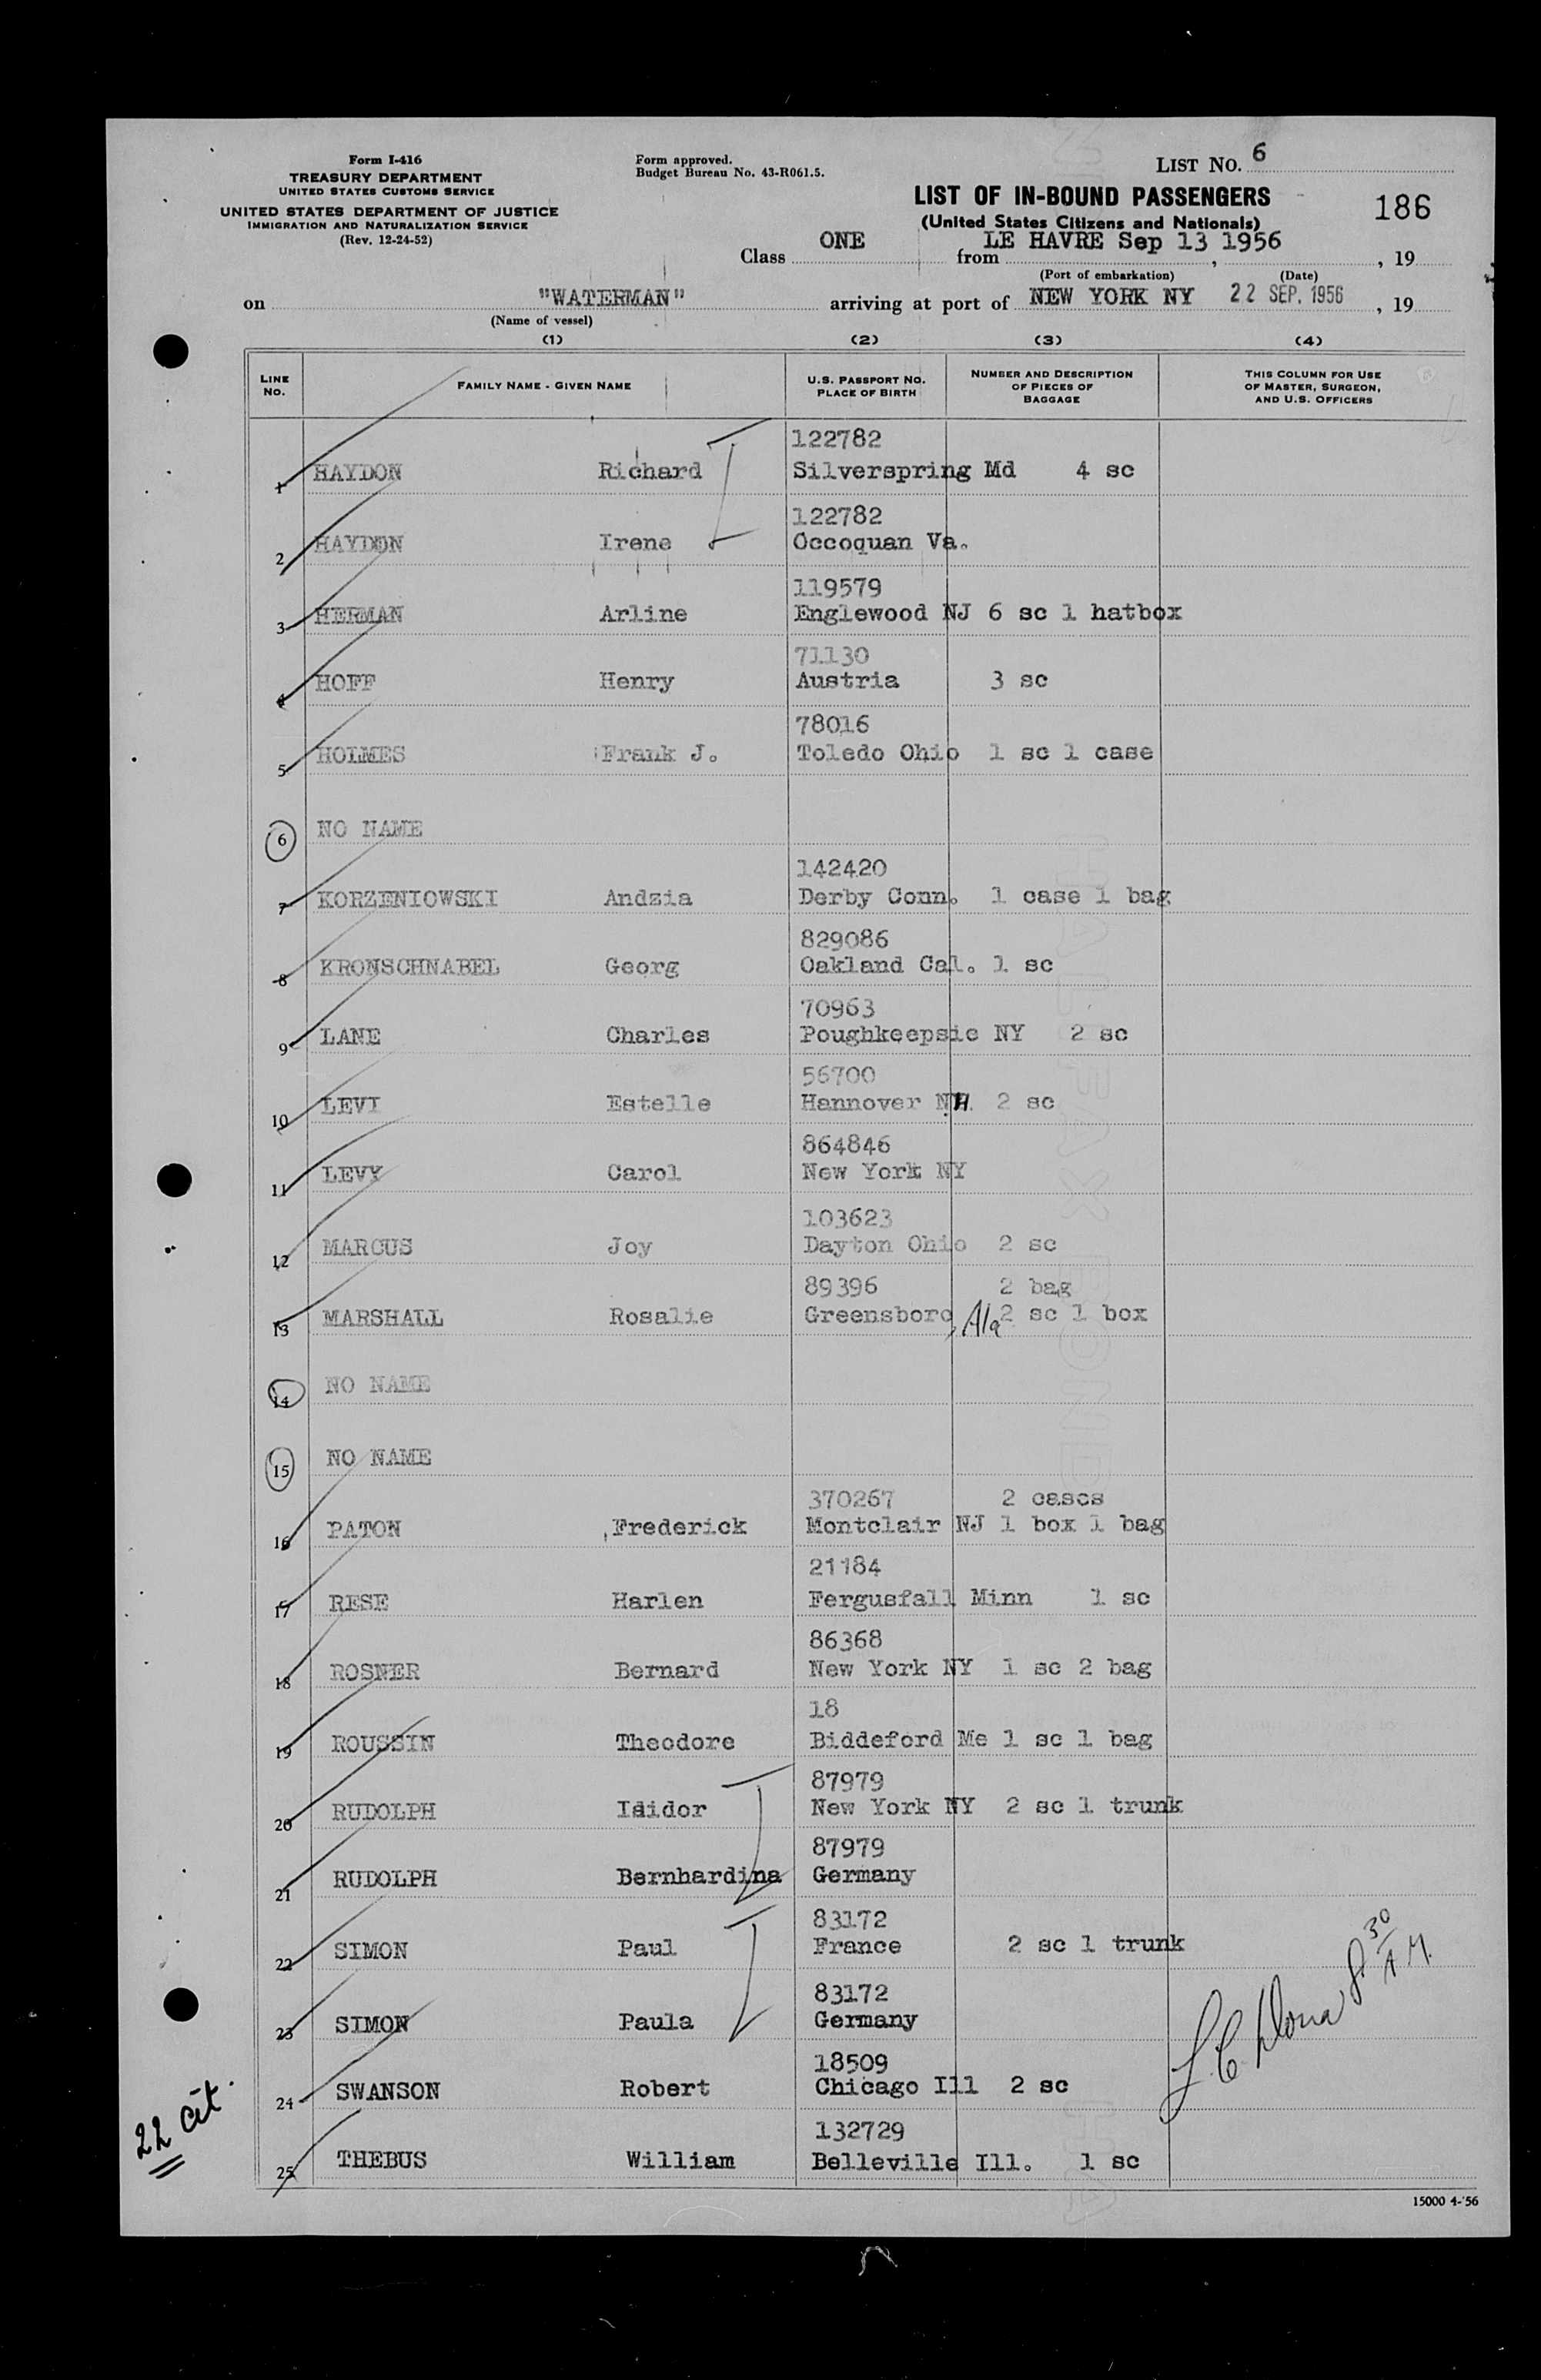 Form I-416
TREASURY DEPARTMENT
UNITED STATES CUSTOMS SERVICE
UNITED STATES DEPARTMENT OF JUSTICE
IMMIGRATION AND NATURALIZATION SERVICE
(Rev. 12-24-52)
Form approved.
Budget Bureau No. 43-R061.5.
LIST NO. 6
LIST OF IN-BOUND PASSENGERS
(United States Citizens and Nationals)
186
Class ONE from LE HAVRE Sep 13 1956, 19
(Port of embarkation) (Date)
on "WATERMAN" arriving at port of NEW YORK NY 22 SEP. 1956, 19
(Name of vessel)
(1) (2) (3) (4)
LINE NO. FAMILY NAME - GIVEN NAME U.S. PASSPORT NO. PLACE OF BIRTH NUMBER AND DESCRIPTION OF PIECES OF BAGGAGE THIS COLUMN FOR USE OF MASTER, SURGEON, AND U.S. OFFICERS
122782
1 HAYDON Richard Silverspring Md 4 sc
122782
2 HAYDON Irene Occoquan Va.
119579
3 HERMAN Arline Englewood NJ 6 sc 1 hatbox
71130
4 HOFF Henry Austria 3 sc
78016
5 HOLMES Frank J. Toledo Ohio 1 sc 1 case
6 NO NAME
142420
7 KORZENIOWSKI Andzia Derby Conn. 1 case 1 bag
829086
8 KRONSCHNABEL Georg Oakland Cal. 1 sc
70963
9 LANE Charles Poughkeepsie NY 2 sc
56700
10 LEVI Estelle Hannover NH 2 sc
864846
11 LEVY Carol New York NY
103623
12 MARCUS Joy Dayton Ohio 2 sc
89396 2 bag
13 MARSHALL Rosalie Greensboro, Ala 2 sc 1 box
14 NO NAME
15 NO NAME
370267 2 cases
16 PATON Frederick Montclair NJ 1 box 1 bag
21184
17 RESE Harlen Fergusfall Minn 1 sc
86368
18 ROSNER Bernard New York NY 1 sc 2 bag
18
19 ROUSSIN Theodore Biddeford Me 1 sc 1 bag
87979
20 RUDOLPH Isidor New York NY 2 sc 1 trunk
87979
21 RUDOLPH Bernhardina Germany
83172
22 SIMON Paul France 2 sc 1 trunk
83172
23 SIMON Paula Germany
18509
24 SWANSON Robert Chicago Ill 2 sc
132729
25 THEBUS William Belleville Ill. 1 sc
22 cit.
15000 4-'56